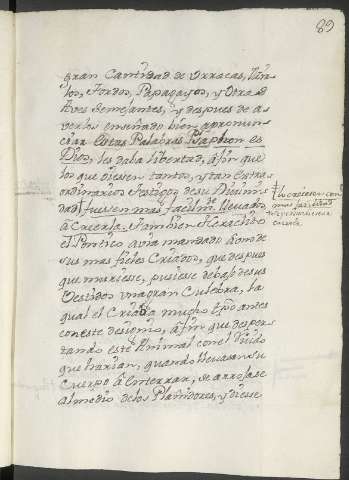 89
gran Cantidad de Urracas, Mir-
los, Tordos, Papagayos, y otras
Aves semejantes, y despues de a-
verlos enseñado bien apronun-
ciar estas Palabras Psaphon es
Dios, les daba libertad, a fin que
los que oiesen tantos, y tan extra-
ordinarios testigos de su Divini-
dad fuesen mas facilm.te llevados
a Creerla. Tambien Heraclides
el Pontico avia mandado a uno de
sus mas fieles Criados, que despues
que muriesse, pusiesse debajo de sus
Vestidos una gran Culebra, la
qual el Criaba mucho tpõ antes
con este designio, a fin que desper-
tando este Animal con el ruido
que harian, quando llevasen su
Cuerpo â enterrar, se arrojase
al medio de los Plañidores, y diesse
lo creiesen con
mas facilidad